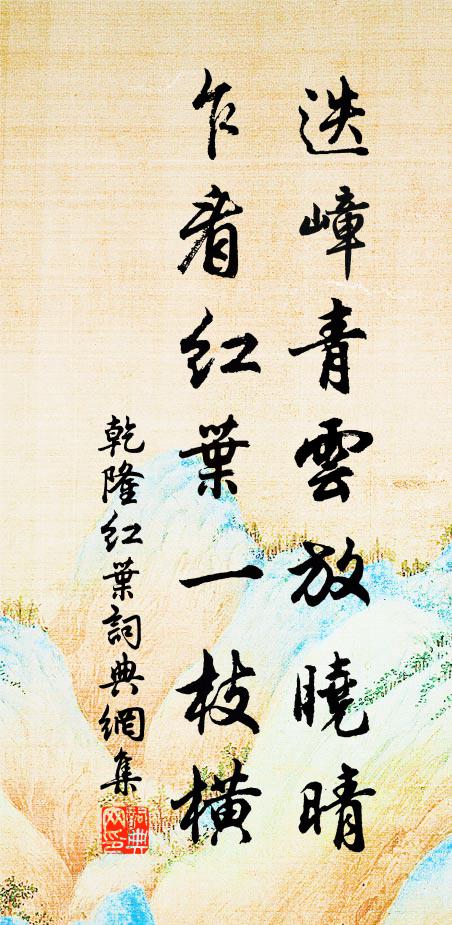 迭嶂青雲放曉晴
乍看紅葉一枝橫
乾隆紅葉詞典網集
詞典網印